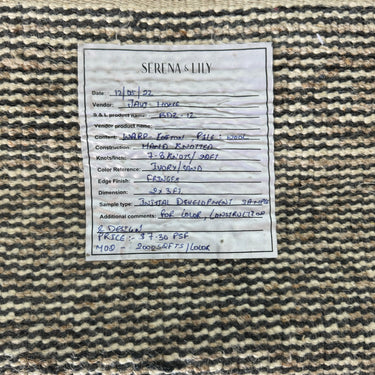 SERENA & LILY
Date: 12/05/22
Vendor: JAVI HOME
S & L product name: BDR-12
Vendor product name:
Content: WARP: COTTON, PILE: WOOL
Construction: HAND KNOTTED
Knots/Inch: 7-8 KNOTS/
Color Reference: IVORY/SAND
Edge Finish: FRINGES
Dimension: 2x3FT
Sample type: INITIAL DEVELOPMENT SAMPLE
Additional comments: FOR COLOR, CONSTRUCTION
& DESIGN
PRICE:- $7.30 PSF
MOQ - 2000 SQFTS/COLOR